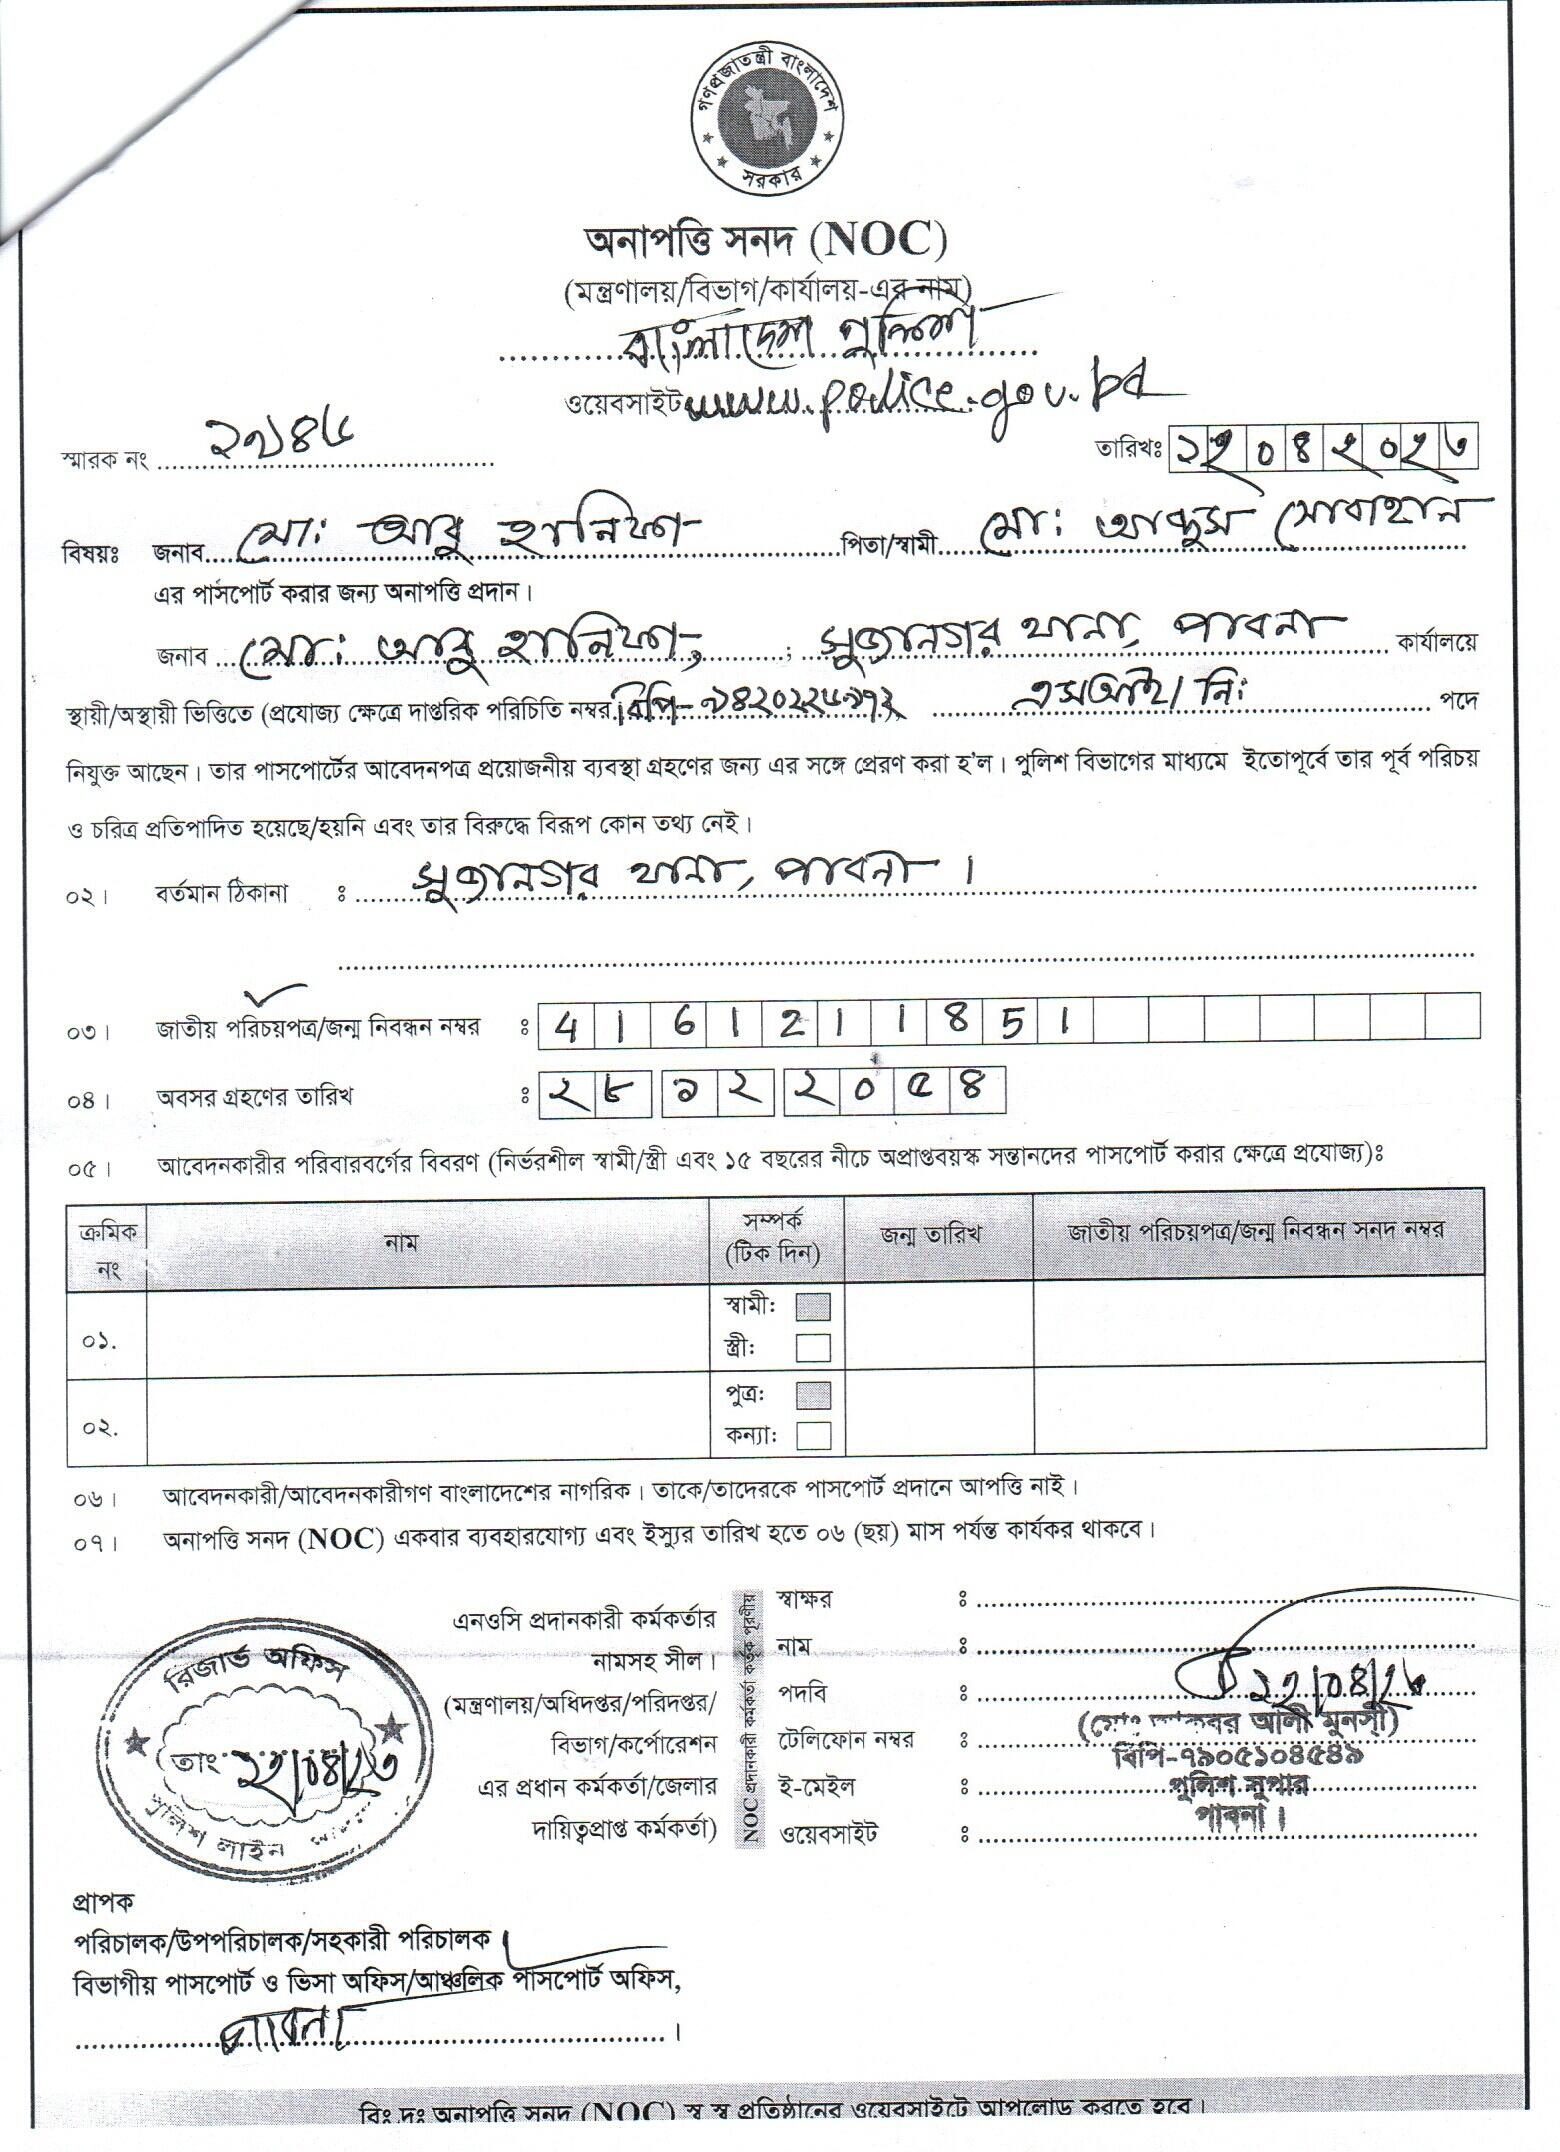 গণপ্রজাতন্ত্রী বাংলাদেশ
সরকার
অনাপত্তি সনদ (NOC)
(মন্ত্রণালয়/বিভাগ/কার্যালয়-এর নাম)
বাংলাদেশ পুলিশ
ওয়েবসাইট www.police.gov.bd
স্মারক নং
তারিখঃ ১২০৪২০২৩
বিষয়ঃ জনাব মো: আবু হানিফা পিতা/স্বামী মো: আব্দুস সোবাহান
এর পাসপোর্ট করার জন্য অনাপত্তি প্রদান।
জনাব মো: আবু হানিফা, ; সুজানগর থানা, পাবনা কার্যালয়ে
স্থায়ী/অস্থায়ী ভিত্তিতে (প্রযোজ্য ক্ষেত্রে দাপ্তরিক পরিচিতি নম্বর বিপি- এসআই/নি: পদে
নিযুক্ত আছেন। তার পাসপোর্টের আবেদনপত্র প্রয়োজনীয় ব্যবস্থা গ্রহণের জন্য এর সঙ্গে প্রেরণ করা হ'ল। পুলিশ বিভাগের মাধ্যমে ইতোপূর্বে তার পূর্ব পরিচয়
ও চরিত্র প্রতিপাদিত হয়েছে/হয়নি এবং তার বিরুদ্ধে বিরূপ কোন তথ্য নেই।
০২। বর্তমান ঠিকানা ঃ সুজানগর থানা, পাবনা।
০৩। জাতীয় পরিচয়পত্র/জন্ম নিবন্ধন নম্বর ঃ 4161211851
০৪। অবসর গ্রহণের তারিখ ঃ ২৮ ১২ ২০৫৪
০৫। আবেদনকারীর পরিবারবর্গের বিবরণ (নির্ভরশীল স্বামী/স্ত্রী এবং ১৫ বছরের নীচে অপ্রাপ্তবয়স্ক সন্তানদের পাসপোর্ট করার ক্ষেত্রে প্রযোজ্য)ঃ
ক্রমিক নং নাম সম্পর্ক (টিক দিন) জন্ম তারিখ জাতীয় পরিচয়পত্র/জন্ম নিবন্ধন সনদ নম্বর
০১. স্বামী:
স্ত্রী:
০২. পুত্র:
কন্যা:
০৬। আবেদনকারী/আবেদনকারীগণ বাংলাদেশের নাগরিক। তাকে/তাদেরকে পাসপোর্ট প্রদানে আপত্তি নাই।
০৭। অনাপত্তি সনদ (NOC) একবার ব্যবহারযোগ্য এবং ইস্যুর তারিখ হতে ০৬ (ছয়) মাস পর্যন্ত কার্যকর থাকবে।
এনওসি প্রদানকারী কর্মকর্তার
নামসহ সীল।
(মন্ত্রণালয়/অধিদপ্তর/পরিদপ্তর/
বিভাগ/কর্পোরেশন
এর প্রধান কর্মকর্তা/জেলার
দায়িত্বপ্রাপ্ত কর্মকর্তা)
NOC প্রদানকারী কর্মকর্তা কর্তৃক পূরণীয়
স্বাক্ষর ঃ
নাম ঃ
পদবি ঃ
টেলিফোন নম্বর ঃ
ই-মেইল ঃ
ওয়েবসাইট ঃ
১২/০৪/২৩
(মোঃ আকবর আলী মুনসী)
বিপি-৭৯০৫১০৪৫৪৯
পুলিশ সুপার
পাবনা।
রিজার্ভ অফিস
তাং ১২/০৪/২৩
পুলিশ লাইন
প্রাপক
পরিচালক/উপপরিচালক/সহকারী পরিচালক
বিভাগীয় পাসপোর্ট ও ভিসা অফিস/আঞ্চলিক পাসপোর্ট অফিস,
পাবনা।
বিঃ দ্রঃ অনাপত্তি সনদ (NOC) স্ব স্ব প্রতিষ্ঠানের ওয়েবসাইটে আপলোড করতে হবে।